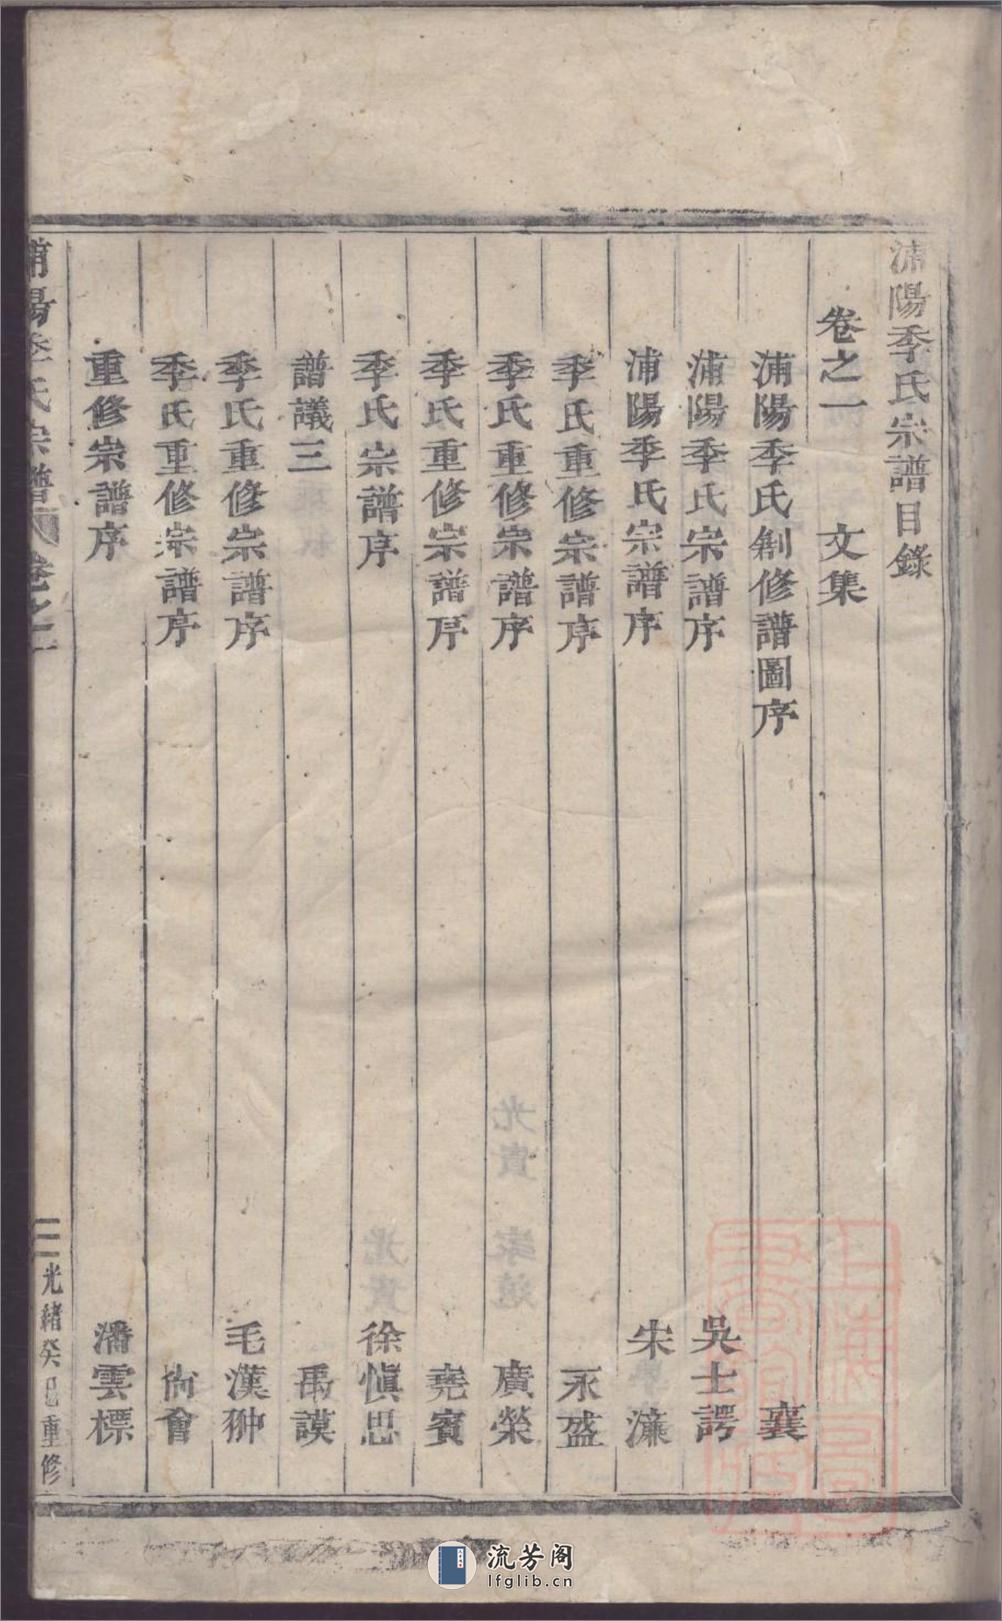 浦陽季氏宗譜目錄
卷之一 文集
浦陽季氏創修譜圖序 襄
浦陽季氏宗譜序 吳士諤
浦陽季氏宗譜序 宋濂
季氏重修宗譜序 永盛
季氏重修宗譜序 廣榮
季氏重修宗譜序 堯賓
季氏宗譜序 徐愼思
譜議三 禹謨
季氏重修宗譜序 毛漢翀
季氏重修宗譜序 尙會
重修宗譜序 潘雲標
浦陽季氏宗譜 卷之一 二 光緒癸巳重修
上海圖書館藏
流芳阁
lfglib.cn